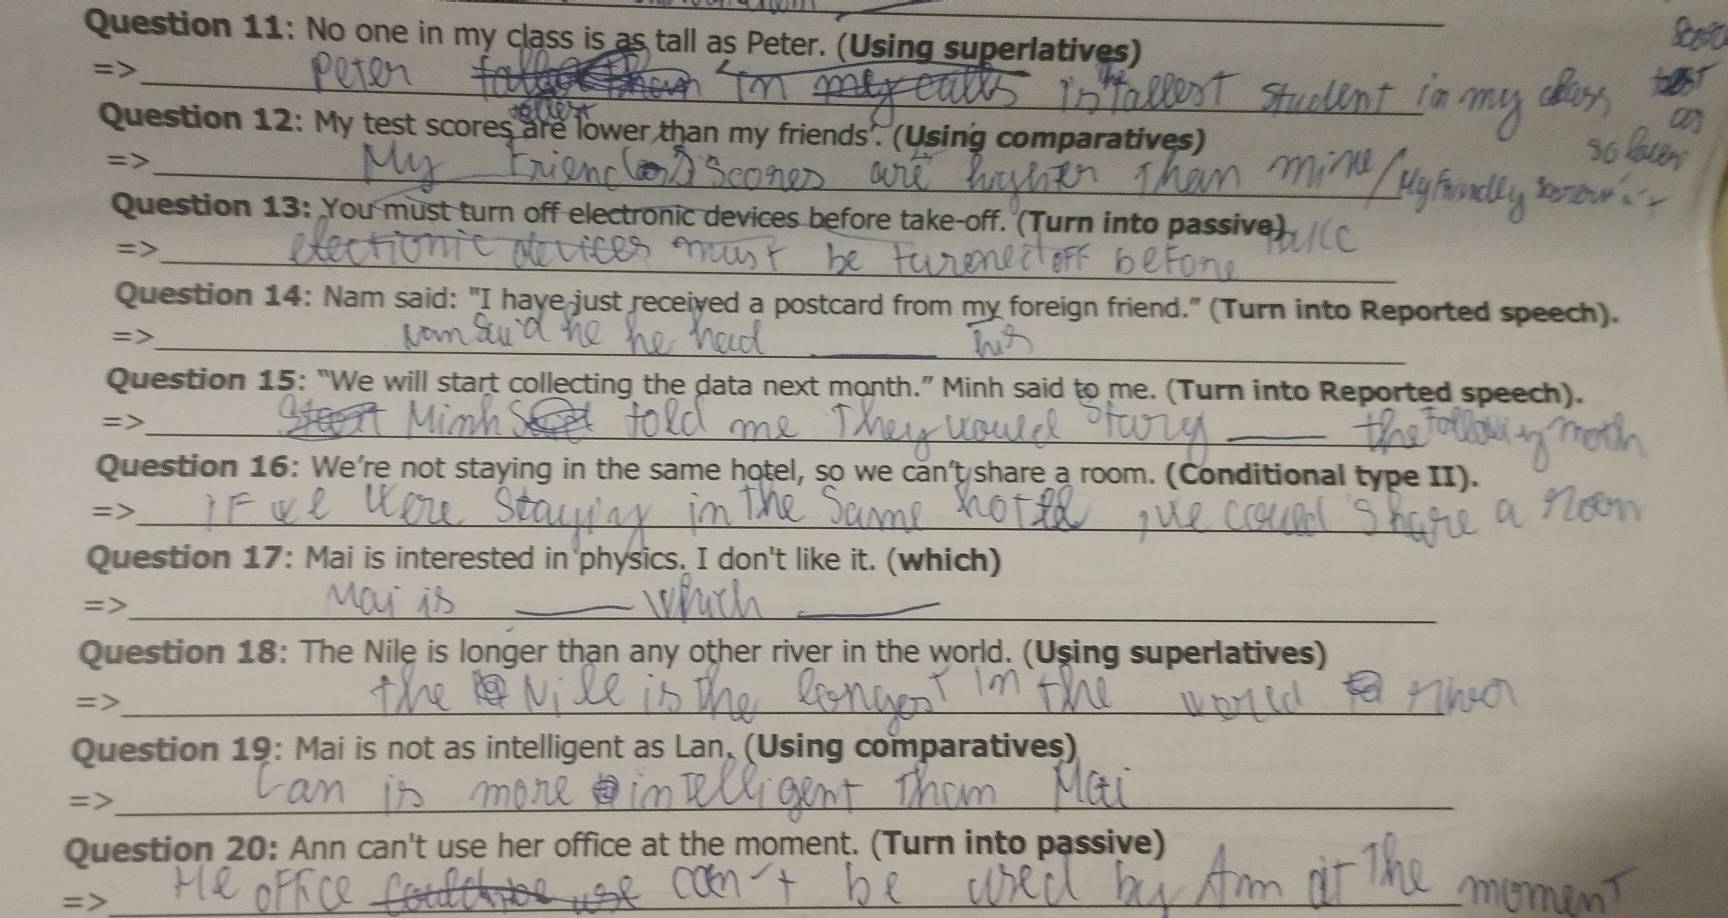 Question 11: No one in my class is as tall as Peter. (Using superlatives)
=> Peter in is the tallest student in my class
Question 12: My test scores are lower than my friends'. (Using comparatives)
as
=> My Friend scores are higher than mine /
Question 13: You must turn off electronic devices before take-off. (Turn into passive)
=> electionic devices must be turoned off before
Question 14: Nam said: "I have just received a postcard from my foreign friend." (Turn into Reported speech).
=> Nam said he he had ____ his
Question 15: "We will start collecting the data next month." Minh said to me. (Turn into Reported speech).
=> Minh told me They would ____ the following moth
Question 16: We're not staying in the same hotel, so we can't share a room. (Conditional type II).
=> IF we were staying in the same hotel , we could share a room
Question 17: Mai is interested in physics. I don't like it. (which)
=> Mai is ____ which ____
Question 18: The Nile is longer than any other river in the world. (Using superlatives)
=> the Nile is the longest in the world river
Question 19: Mai is not as intelligent as Lan. (Using comparatives)
=> Lan is more intelligent than Mai
Question 20: Ann can't use her office at the moment. (Turn into passive)
=> He office can't be used by Ann at the moment